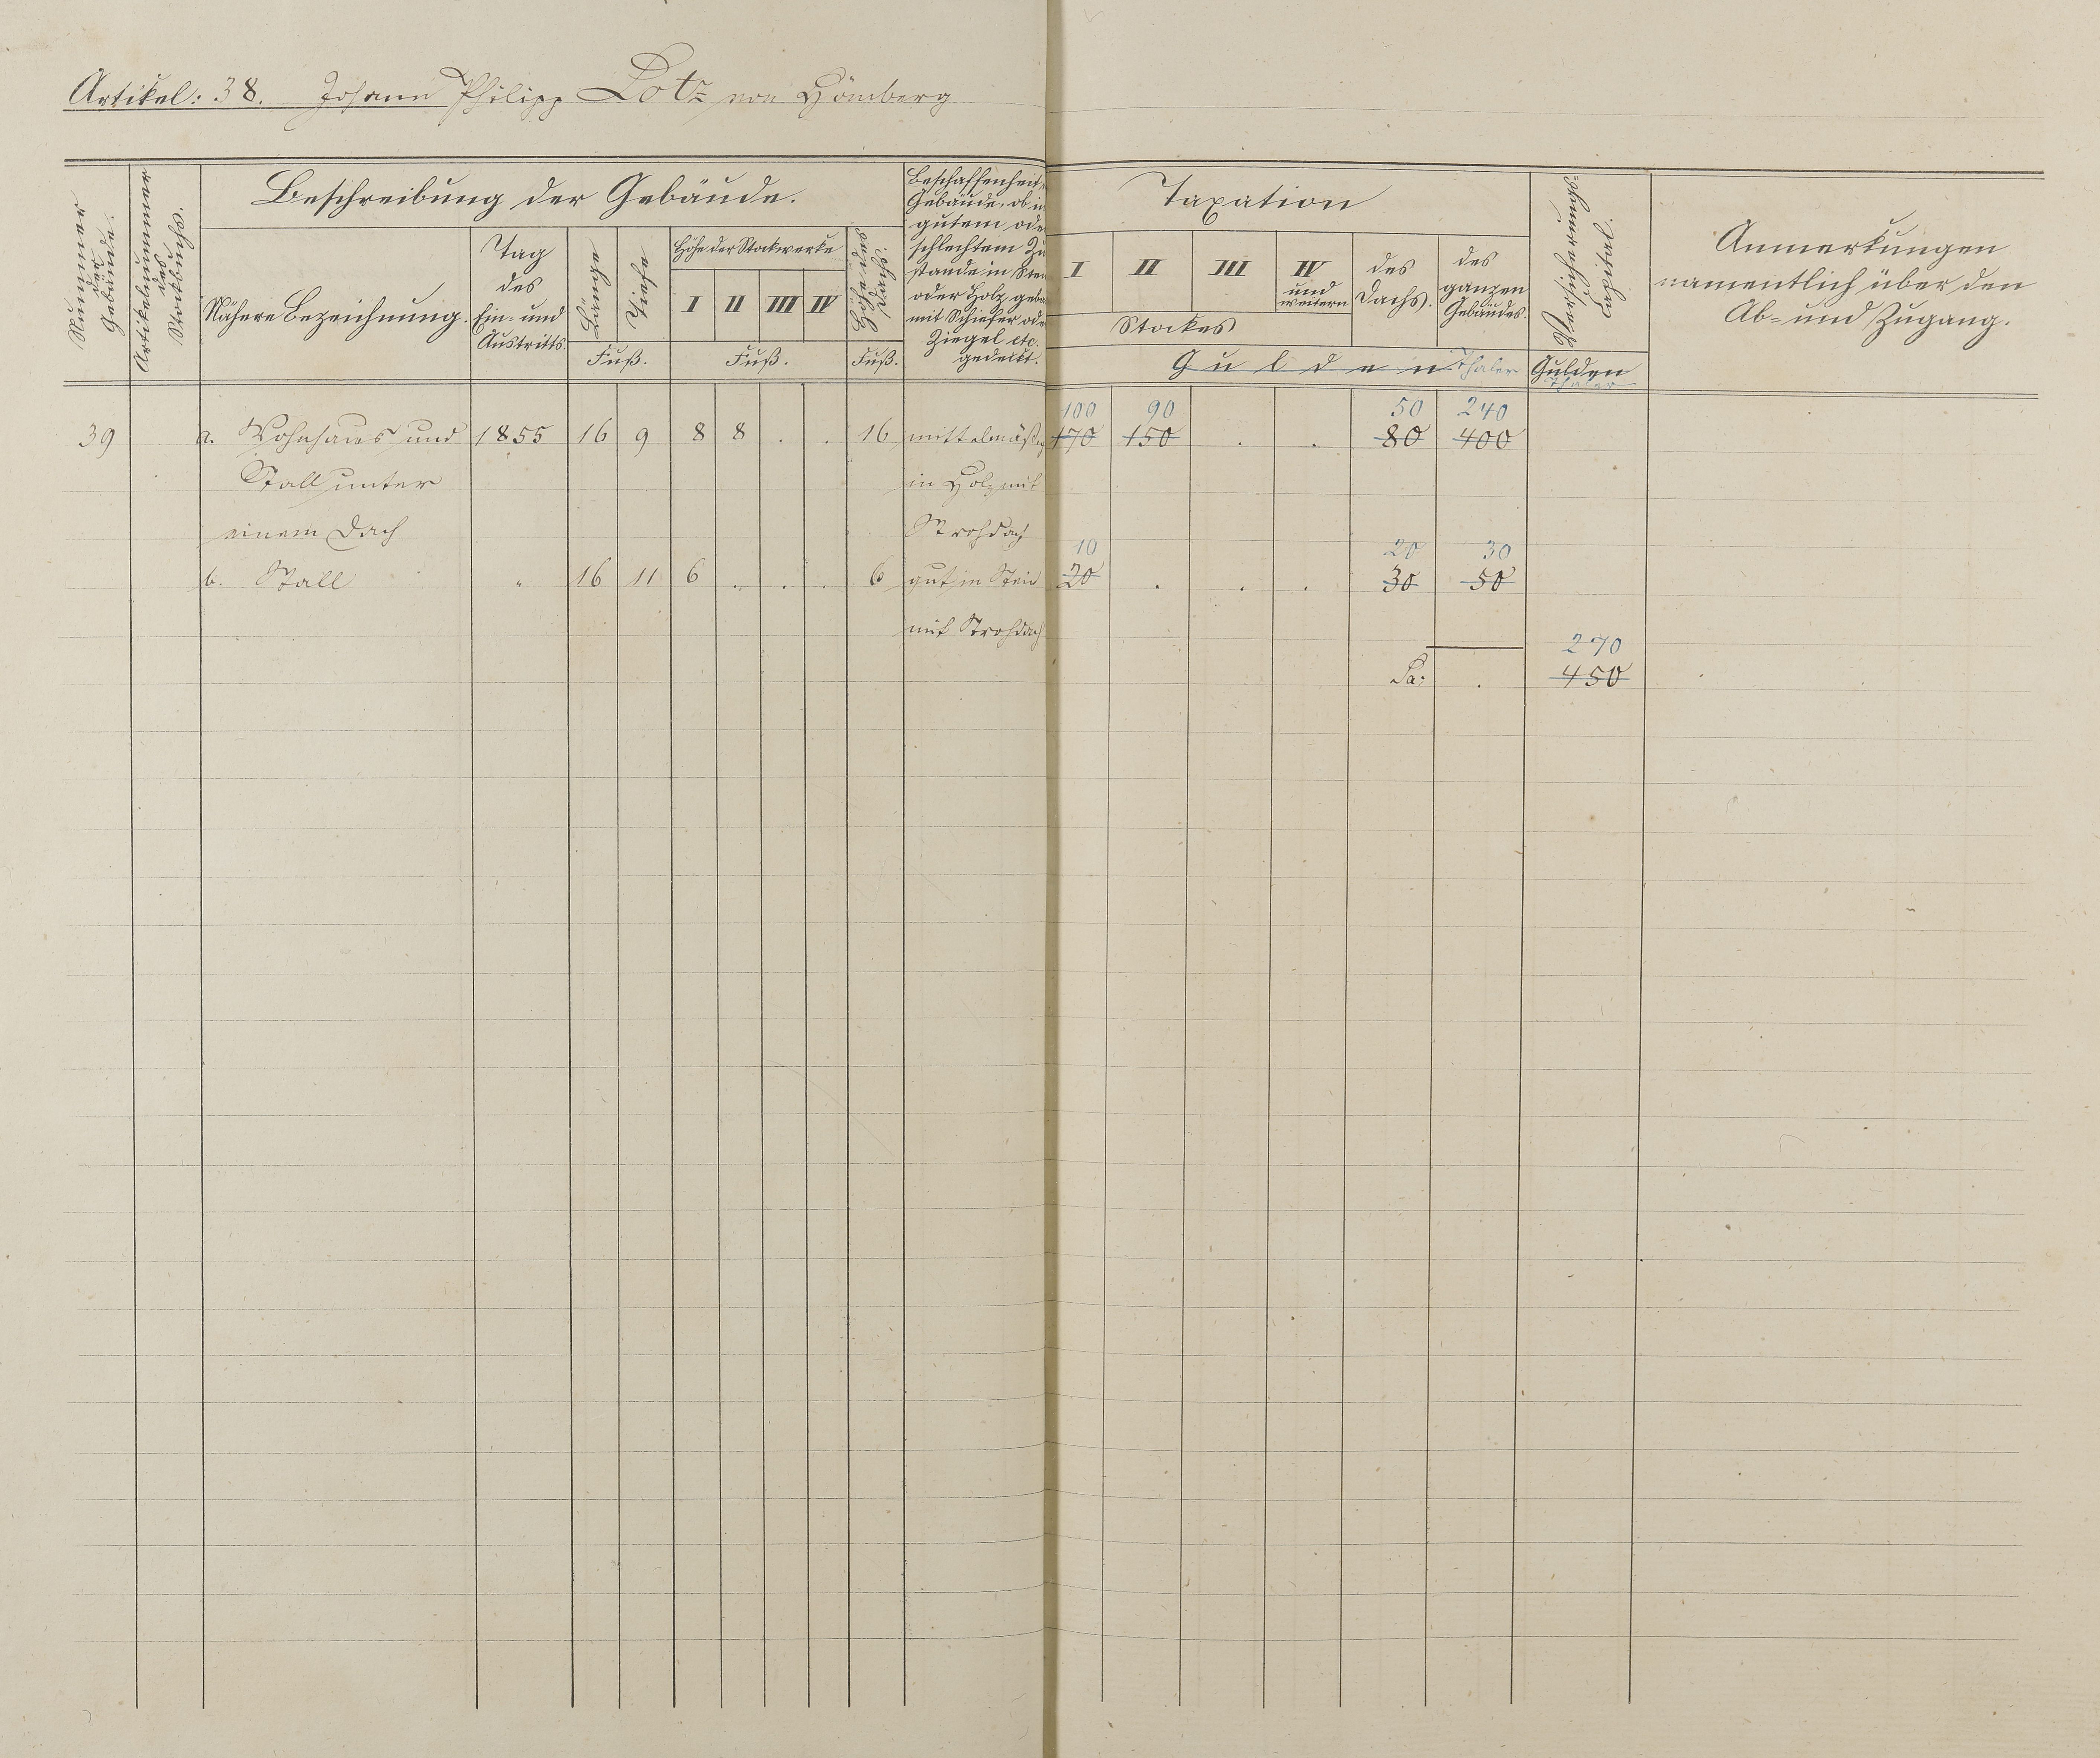 Artikel: 38. Johann Philipp Lotz von Hömberg
Nummer der Gebäude.
Artikelnummer des Stockbuchs.
Beschreibung der Gebäude.
Nähere Bezeichnung.
Tag
des
Ein- und
Austritts.
Länge
Tiefe
Fuß.
Höhe der Stockwerke
I II III IV
Fuß.
Höhe des Dachs.
Fuß.
Beschaffenheit
Gebäude, ob in
gutem ode
schlechtem Zu
stande in Stei
oder Holz geba
mit Schiefer ode
Ziegel etc.
gedeckt.
Taxation
I II III IV
und
weitern
Stockes
des
Dachs.
des
ganzen
Gebäudes.
Gulden Thaler
Versicherungs-
Capital.
Gulden
Thaler
Anmerkungen
namentlich über den
Ab- und Zugang.
100 90 50 240
39 a. Wohnhaus und 1855 16 9 8 8 . . 16 mittelmäßig 170 150 . . 80 400
Stall unter in Holz mit
einem Dach Strohdach
10 20 30
b. Stall " 16 11 6 . . . 6 gut in Stein 20 . . . 30 50
mit Strohdach
270
Sa: . 450